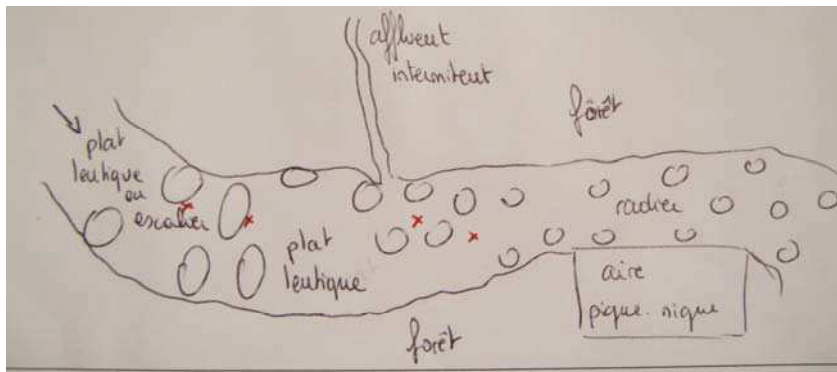 affluent
intermitent
forêt
plat
lentique
ou
escalier
radier
plat
lentique
aire
pique-nique
forêt